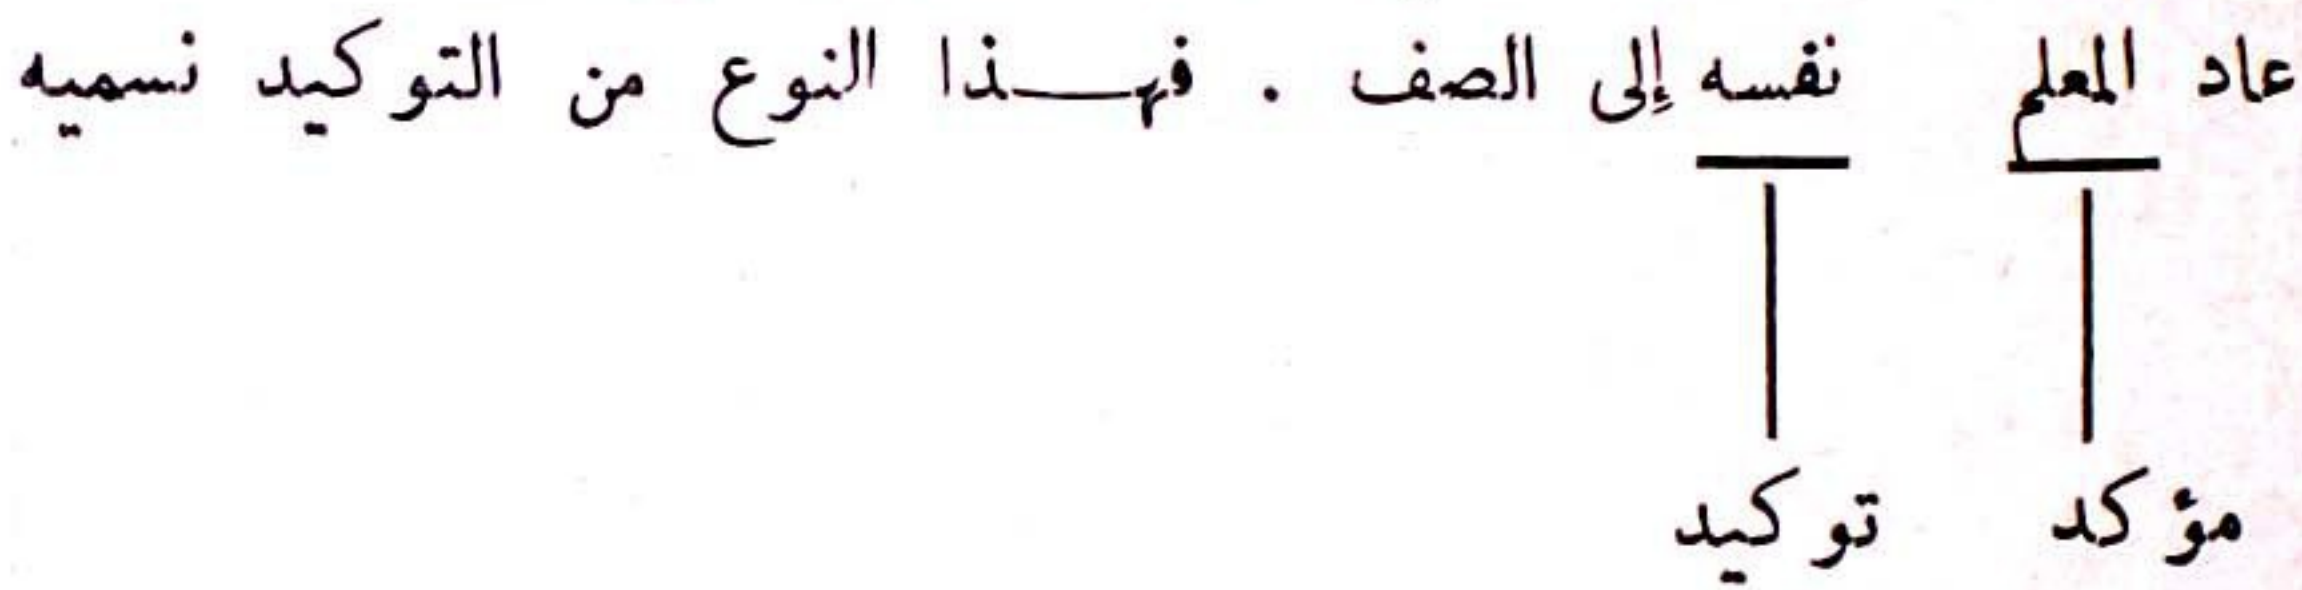 عاد المعلم نفسه إلى الصف . فهـذا النوع من التوكيد نسميه
مؤكد توكيد